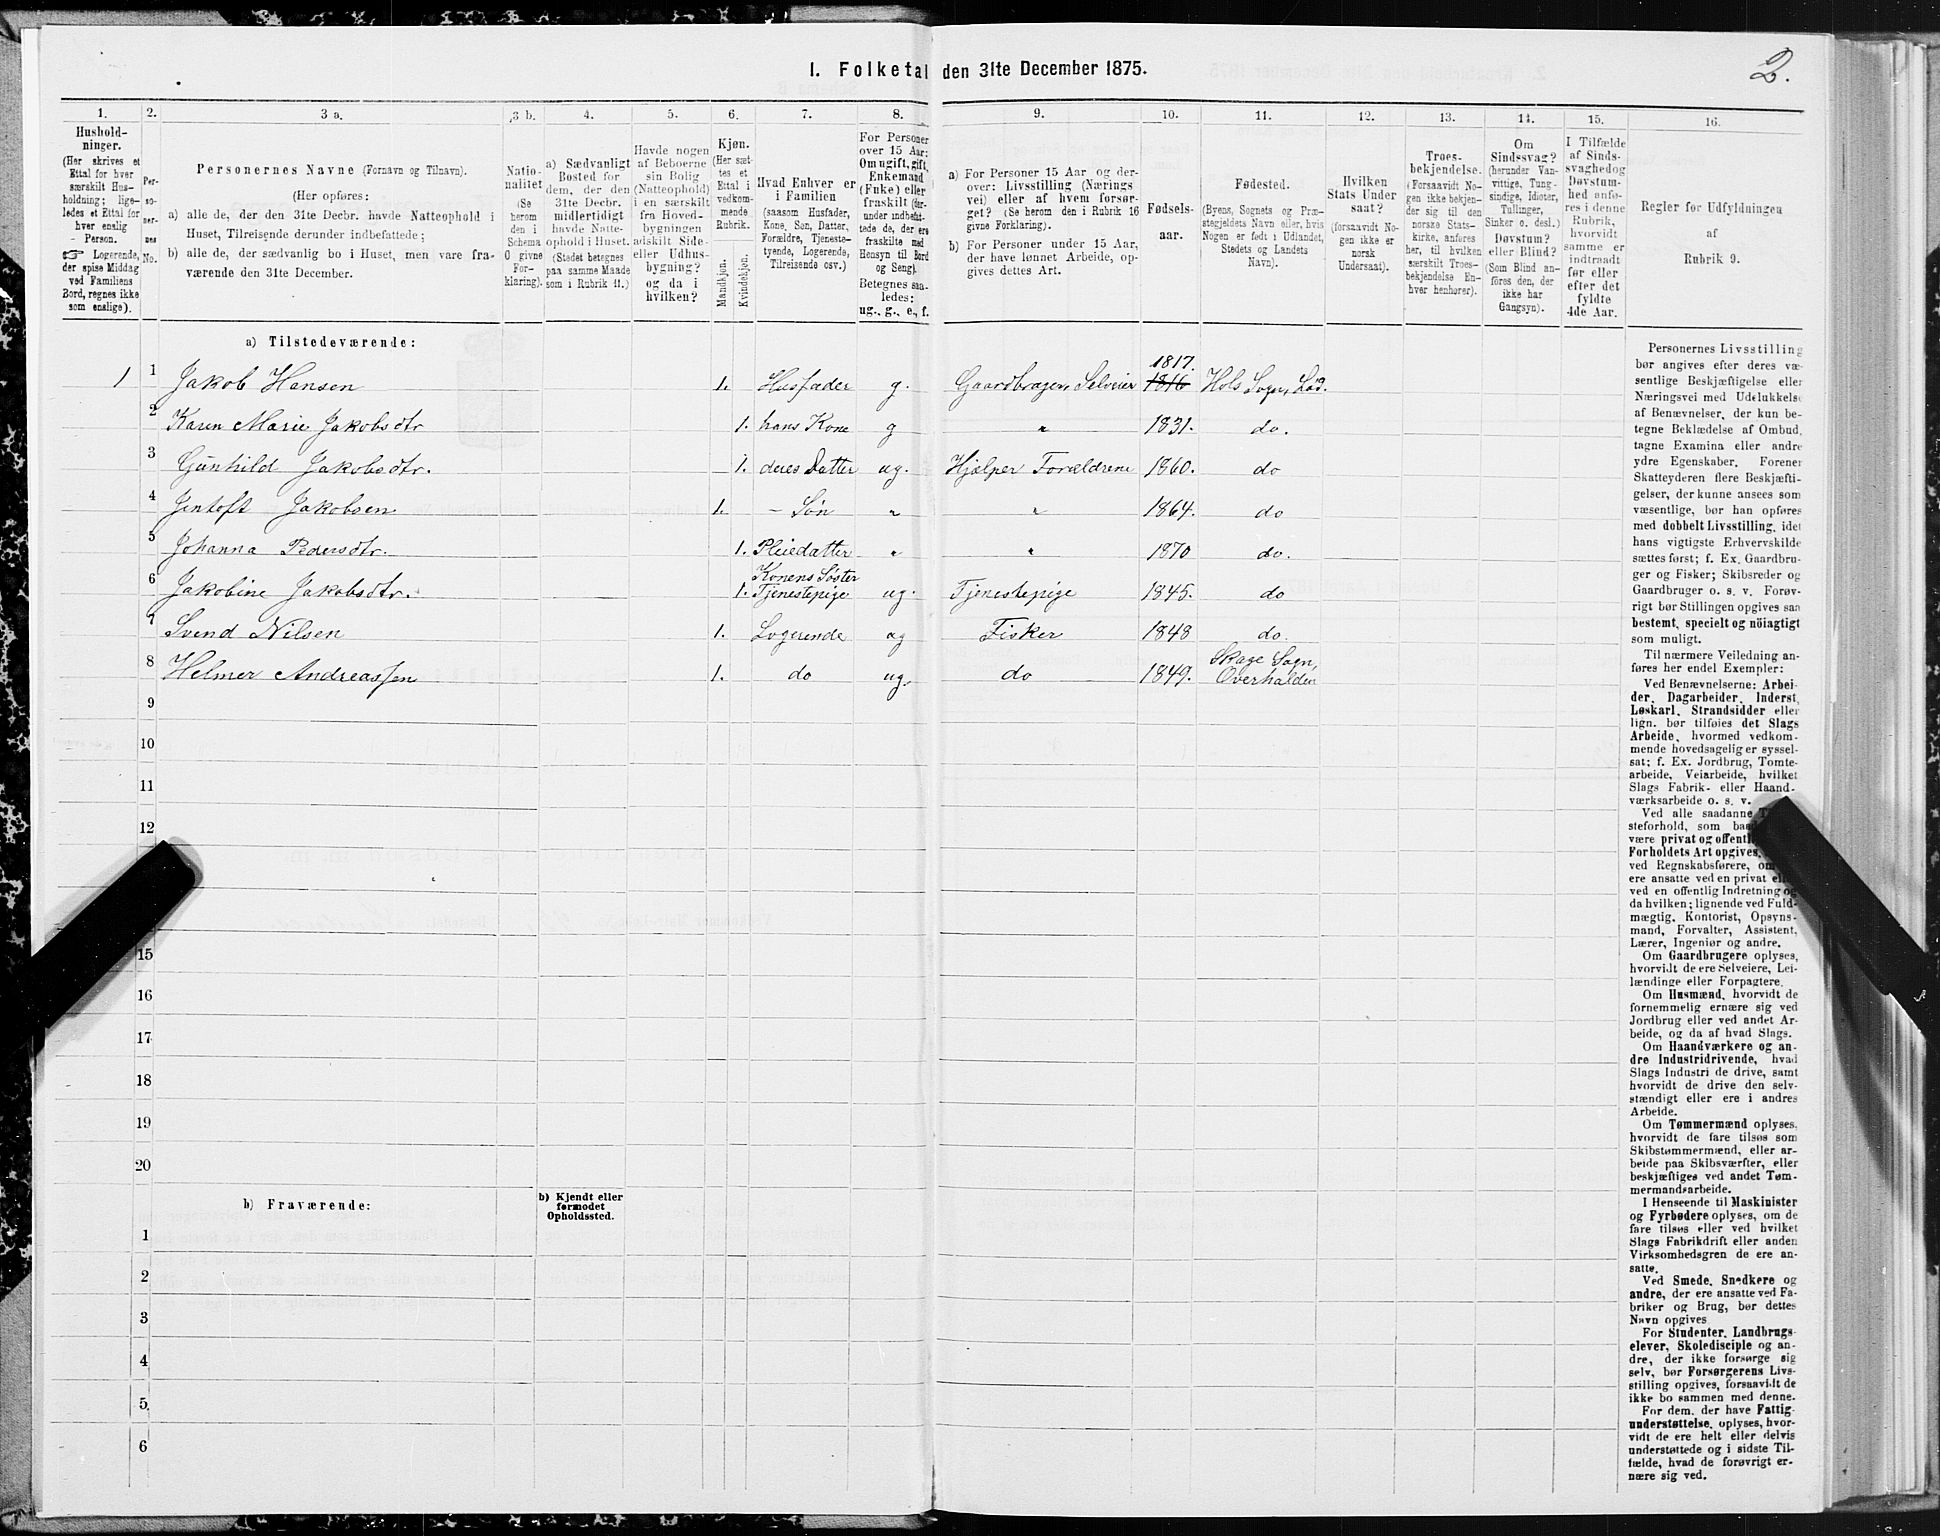 2.
1. Folketal den 31te December 1875.
1. 2. 3 a. 3 b. 4. 5. 6. 7. 8. 9. 10. 11. 12. 13. 14. 15. 16.
Hushold-
ninger.
(Her skrives et
Ettal for hver
særskilt Hus-
holdning; lige-
ledes et Ettal for
hver enslig
Person.
☞ Logerende,
der spise Middag
ved Familiens
Bord, regnes ikke
som enslige).
Per-
so-
ner-
nes
No.
Personernes Navne (Fornavn og Tilnavn).
(Her opføres:
a) alle de, der den 31te Decbr. havde Natteophold i
Huset, Tilreisende derunder indbefattede;
b) alle de, der sædvanlig bo i Huset, men vare fra-
værende den 31te December.
Natio-
nalitet
(Se
herom
den i
Schema
O givne
For-
klaring).
a) Sædvanligt
Bosted for
dem, der den
31te Decbr.
midlertidigt
havde Natte-
ophold i Huset.
(Stedet betegnes
paa samme Maade
som i Rubrik 11.)
Havde nogen
af Beboerne
sin Bolig
(Natteophold)
i en særskilt
fra Hoved-
bygningen
adskilt Side-
eller Udhus-
bygning?
og da i
hvilken?
Kjøn.
(Her sæt-
tes et
Ettal i
vedkom-
mende
Rubrik.
Mandkjøn.
Kvindekjøn.
Hvad Enhver er
i Familien
(saasom Husfader,
Kone, Søn, Datter,
Forældre, Tjeneste-
tyende, Logerende,
Tilreisende osv.)
For Personer
over 15 Aar:
Om ugift, gift,
Enkemand
(Enke) eller
fraskilt (der-
under indbefat-
tede de, der ere
fraskilte med
Hensyn til Bord
og Seng).
Betegnes saa-
ledes:
ug., g., e., f.
a) For Personer 15 Aar og der-
over: Livsstilling (Nærings
vei) eller af hvem forsør-
get? (Se herom den i Rubrik 16
givne Forklaring).
b) For Personer under 15 Aar,
der have lønnet Arbeide, op-
gives dettes Art.
Fødsels-
aar.
Fødested.
(Byens, Sognets og Præ-
stegjeldets Navn eller, hvis
Nogen er født i Udlandet,
Stedets og Landets
Navn).
Hvilken
Stats Under
saat?
(forsaavidt No-
gen ikke er
norsk
Undersaat).
Troes-
bekjendelse.
(Forsaavidt No-
gen ikke bekjen-
der sig til den
norske Stats-
kirke, anføres
her, til hvilken
særskilt Troes-
bekjendelse En-
hver henhører).
Om
Sindssvag?
(herunder Van-
vittige, Tung-
sindige, Idioter,
Tullinger,
Sinker o. desl.)
Døvstum?
eller Blind?
(Som Blind an-
føres den, der
ikke har
Gangsyn).
I Tilfælde
af Sinds-
svaghed og
Døvstum-
hed anfø-
res i denne
Rubrik,
hvorvidt
samme er
indtraadt
før eller
efter det
fyldte
4de Aar.
Regler for Udfyldningen
af
Rubrik 9.
a) Tilstedeværende:
1817.
1 1 Jakob Hansen 1. Husfader g. Gaardbruger, Selveier 1816 Hols Sogn, Lod.
2 Karen Marie Jakobsdtr 1. hans Kone g " 1831. do.
3 Gunhild Jakobsdtr. 1. deres Datter ug. Hjælper Forældrene 1860. do
4 Jentoft Jakobsen 1. - Søn " " 1864. do
5 Johanna Pedersdtr. 1. Pleiedatter " " 1870 do.
Konens Søster
6 Jakobine Jakobsdtr. 1. Tjenestepige ug. Tjenestepige 1845. do
7 Svend Nilsen 1. Logerende ug Fisker 1848 do.
Skage Sogn,
8 Helmer Andreassen 1. do ug. do 1849. Overhalden
9
10
11
12
15
16
17
18
19
20
b) Fraværende:
b) Kjendt eller
formodet
Opholdssted.
1
2
3
4
5
6
Personernes Livsstilling
bør angives efter deres væ-
sentlige Beskjæftigelse eller
Næringsvei med Udelukkelse
af Benævnelser, der kun be-
tegne Beklædelse af Ombud,
tagne Examina eller andre
ydre Egenskaber. Forener
Skatteyderen flere Beskjæfti-
gelser, der kunne ansees som
væsentlige, bør han opføres
med dobbelt Livsstilling, idet
hans vigtigste Erhvervskilde
sættes først; f. Ex. Gaardbru-
ger og Fisker; Skibsreder og
Gaardbruger o. s. v. Forøv-
rigt bør Stillingen opgives saa
bestemt, specielt og nøiagtigt
som muligt.
Til nærmere Veiledning an-
føres her endel Exempler:
Ved Benævnelserne: Arbei-
der, Dagarbeider, Inderst,
Løskarl, Strandsidder eller
lign. bør tilføies det Slags
Arbeide, hvormed vedkom-
mende hovedsagelig er syssel-
sat; f. Ex. Jordbrug, Tomte-
arbeide, Veiarbeide, hvilket
Slags Fabrik- eller Haand-
værksarbeide o. s. v.
Ved alle saadanne
steforhold, som
være privat og
Forholdets Art opgives,
ved Regnskabsførere,
ere ansatte ved en privat
ved en offentlig Indretning og
da hvilken; lignende ved Fuld-
mægtig, Kontorist, Opsyns-
mand, Forvalter, Assistent,
Lærer, Ingeniør og andre.
Om Gaardbrugere oplyses,
hvorvidt de ere Selveiere, Lei-
lændinge eller Forpagtere.
Om Husmænd, hvorvidt de
fornemmelig ernære sig ved
Jordbrug eller ved andet Ar-
beide, og da af hvad Slags.
Om Haandværkere og an-
dre Industridrivende, hvad
Slags Industri de drive, samt
hvorvidt de drive den selv-
stændigt eller ere i andres
Arbeide.
Om Tømmermænd oplyses,
hvorvidt de fare tilsøs som
Skibstømmermænd, eller ar-
beide paa Skibsværfter, eller
beskjæftiges ved andet Tøm-
mermandsarbeide.
I Henseende til Maskinister
og Fyrbødere oplyses, om de
fare tilsøs eller ved hvilket
Slags Fabrikdrift eller anden
Virksomhedsgren de ere an-
satte.
Ved Smede, Snedkere og
andre, der ere ansatte ved Fa-
briker og Brug, bør dettes
Navn opgives
For Studenter, Landbrugs-
elever, Skoledisciple og an-
dre, der ikke forsørge sig
selv, bør Forsørgerens Livs-
stilling opgives, forsaavidt de
ikke bo sammen med denne.
For dem, der have Fattig-
understøttelse, oplyses, hvor-
vidt de ere helt eller delvis
understøttede og i sidste Til-
fælde, hvad de forøvrigt er-
nære sig ved.